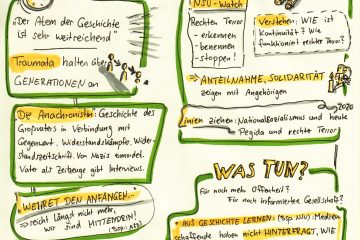 "Der Atem der Geschichte
ist sehr weitreichend"
Traumata halten über
GENERATIONEN an
"Die Anachronistin": Geschichte des
Großvaters in Verbindung mit
Gegenwart. Widerstandskämpfer, Wider-
standszeitschrift. Von Nazis ermordet.
Vater als Zeitzeuge gibt Interviews.
"WEHRET DEN ANFÄNGEN"
⇒ reicht längst nicht mehr,
wir sind MITTENDRIN!
(Bsp.: AfD)
NSU-Watch
Rechten Terror
- erkennen
- benennen
- stoppen!
Verstehen: WIE ist
Kontinuität? Wie
funktioniert rechter Terror?
⇒ ANTEILNAHME, SOLIDARITÄT
zeigen mit Angehörigen
2020
Linien ziehen: Nationalsozialismus und heute
Pegida und rechte Terror
WAS TUN?
Für noch mehr Offenheit?
Für noch informiertere Gesellschaft?
* AUS GESCHICHTE LERNEN: (Bsp. NSU): Medien-
schaffende haben nicht HINTERFRAGT, WIE